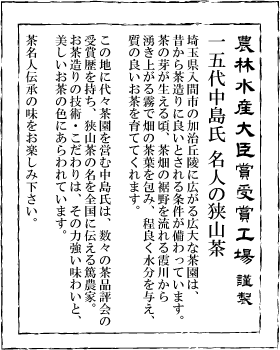 農林水産大臣賞受賞工場 謹製
一五代中島氏 名人の狭山茶
埼玉県入間市の加治丘陵に広がる広大な茶園は、
昔から茶造りに良いとされる条件が備わっています。
茶の芽が生える頃、茶畑の裾野を流れる霞川から
湧き上がる霧で畑の茶葉を包み、程良く水分を与え、
質の良いお茶を育ててくれます。
この地に代々茶園を営む中島氏は、数々の茶品評会の
受賞歴を持ち、狭山茶の名を全国に伝える篤農家。
お茶造りの技術・こだわりは、その力強い味わいと、
美しいお茶の色にあらわれています。
茶名人伝承の味をお楽しみ下さい。